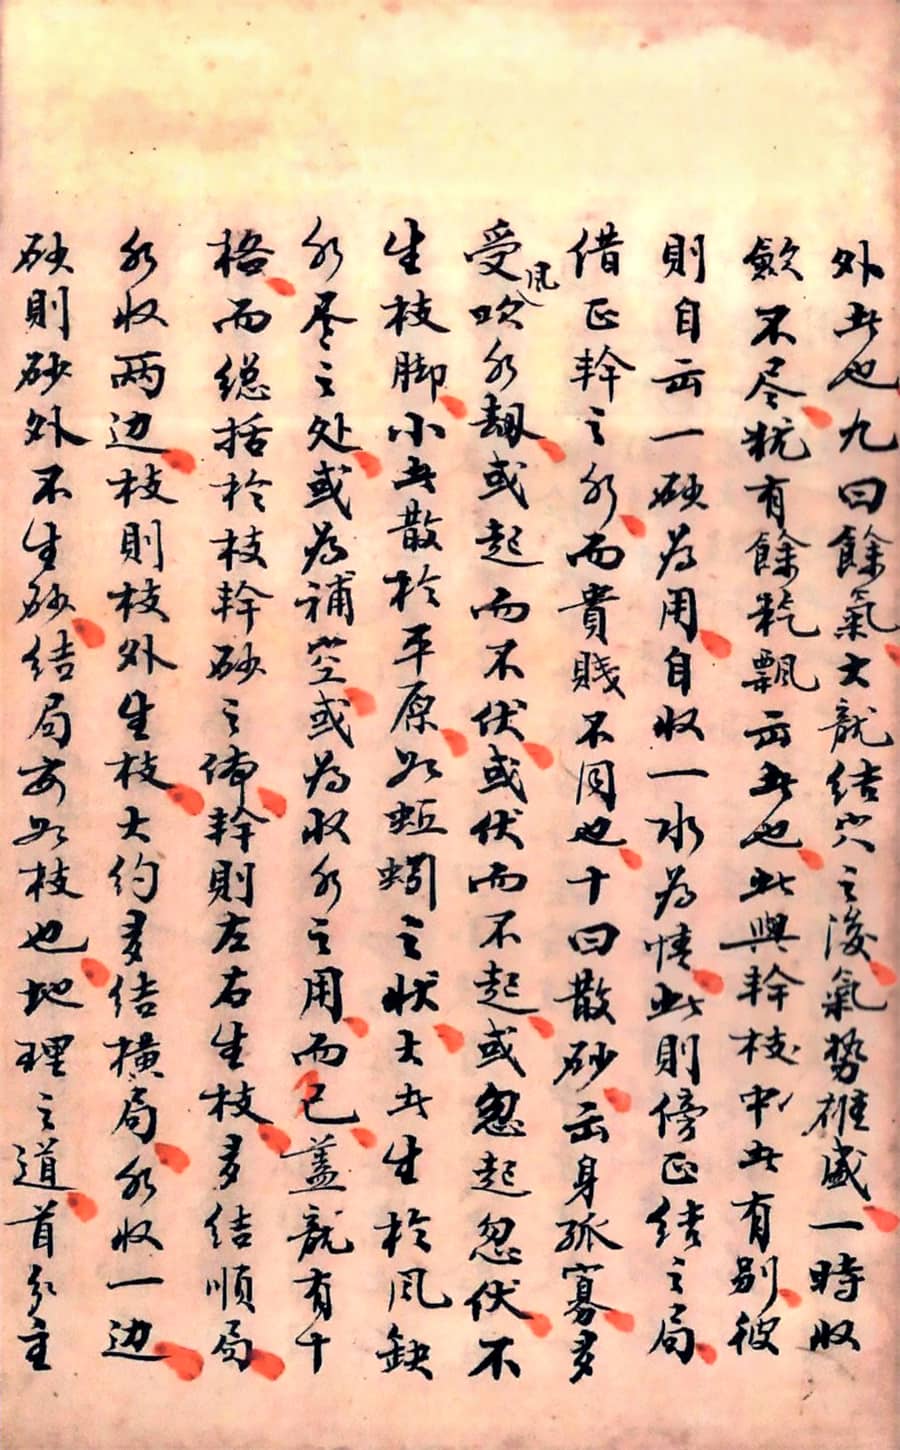 外者也九曰餘氣大龍结穴之後氣势雄盛一時收
歛不尽犹有餘氣飄出者也此與幹枝中者有别彼
則自出一砂為用自收一水為情此則傍正结之局
借正幹之水而貴賤不同也十曰散砂出身孤寡多
受風吹水劫或起而不伏或伏而不起或忽起忽伏不
生枝脚小者散於平原如蚯蚓之状大者生於风缺
水尽之处或為補空或為收水之用而已盖龍有十
格而総括於枝幹砂之体幹則左右生枝多结順局
水收两边枝則枝外生枝大约多结横局水收一边
砂則砂外不生砂结局亦如枝也地理之道首分主